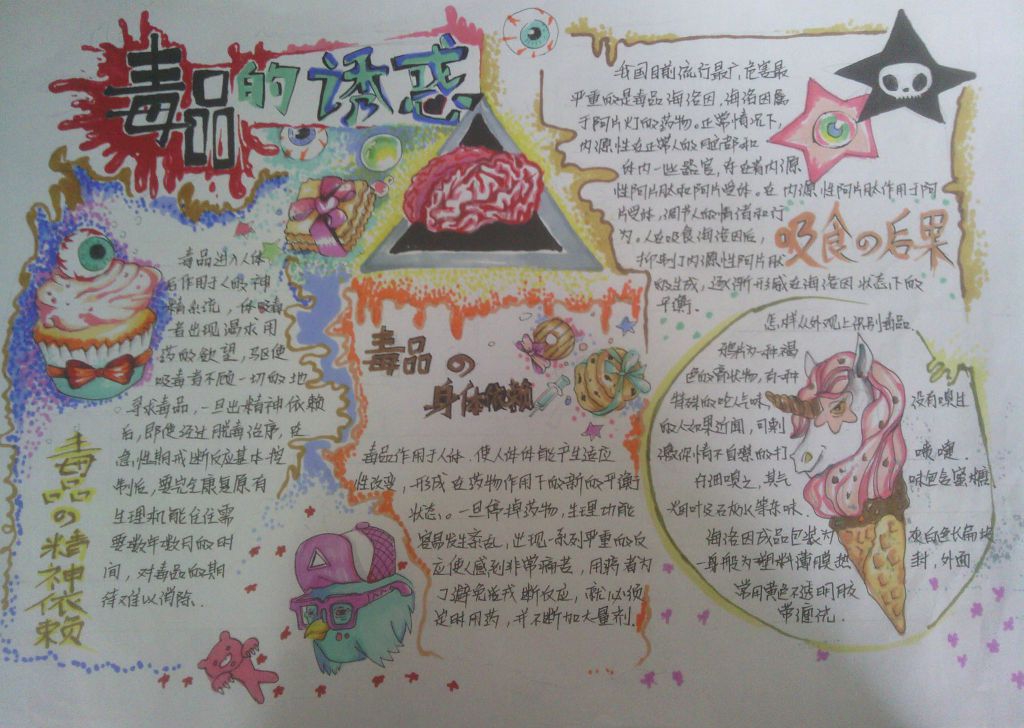 毒品的诱惑
毒品进入人体
后作用于人的精神
精系统，使吸毒
者出现渴求用
药的欲望，驱使
吸毒者不顾一切的地
寻求毒品，一旦出精神依赖
后，即使经过脱毒治疗，在
急性期戒断反应基本控
制后，要完全康复原有
生理机能往往需
要数年数月的时
间，对毒品的期
待难以消除．
毒品の精神依赖
毒品の
身体依赖
毒品作用于人体．使人体体能产生适应
性改变，形成在药物作用下的新的平衡
状态．。一旦停掉药物，生理功能
容易发生紊乱，出现一系列严重的反
应使人感到非常痛苦，用药者为
了避免性戒断反应，就必须
定时用药，并不断加大量剂．
我国目前流行最广，危害最
严重的是毒品海洛因，海洛因属
于阿片灯的药物。正常情况下，
内源性在正常人的脑部和
体内一些器官，存在着内源
性阿片肽和阿片受体。在内源性阿片肽作用于阿
片受体，调节人的情绪和行
为。人在吸食海洛因后，
抑制了内源性阿片肽
的生成，逐渐形成在海洛因状态下的
平衡．
吸食の后果
怎样从外观上识别毒品．
鸦片为一种褐
色的膏状物，有一种
特殊的吃人气味，没有嗅过
的人如果近闻，可刺
激你情不自禁的打喷嚏．
仔细嗅之，其气味包含蜜糖
烟叶皮石灰水等杂味．
海洛因成品包装为灰白色长扁块
一身般为塑料薄膜热封，外面
常用黄色不透明胶
带缠绕．